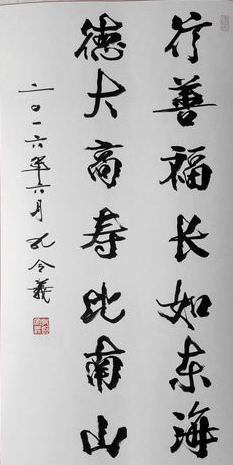 行善福长如东海
德大高寿比南山
二〇一六年六月 孔令義